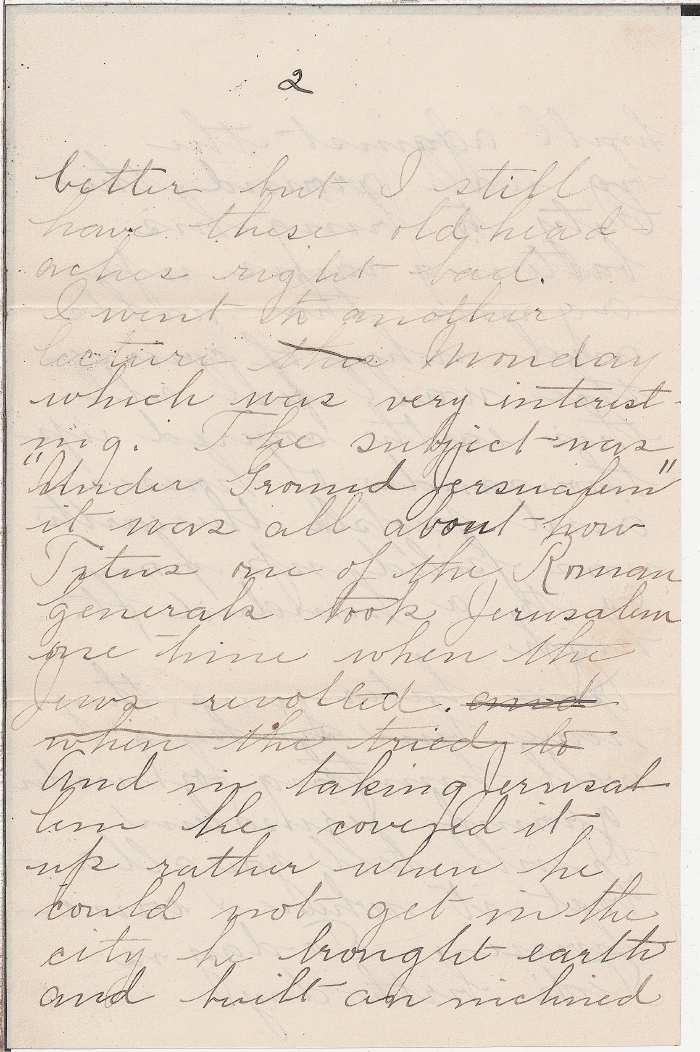 2
better but I still
have these old head-
aches right bad.
I went to another
lecture this Monday
which was very interest-
ing. The subject was
"Under Ground Jersualem"
it was all about how
Titus one of the Roman
generals took Jerusalem
one time when the
Jews revolted. and
when the tried to
And in taking Jerusal
lem he covered it
up rather when he
could not get in the
city he brought earth
and built an inclined